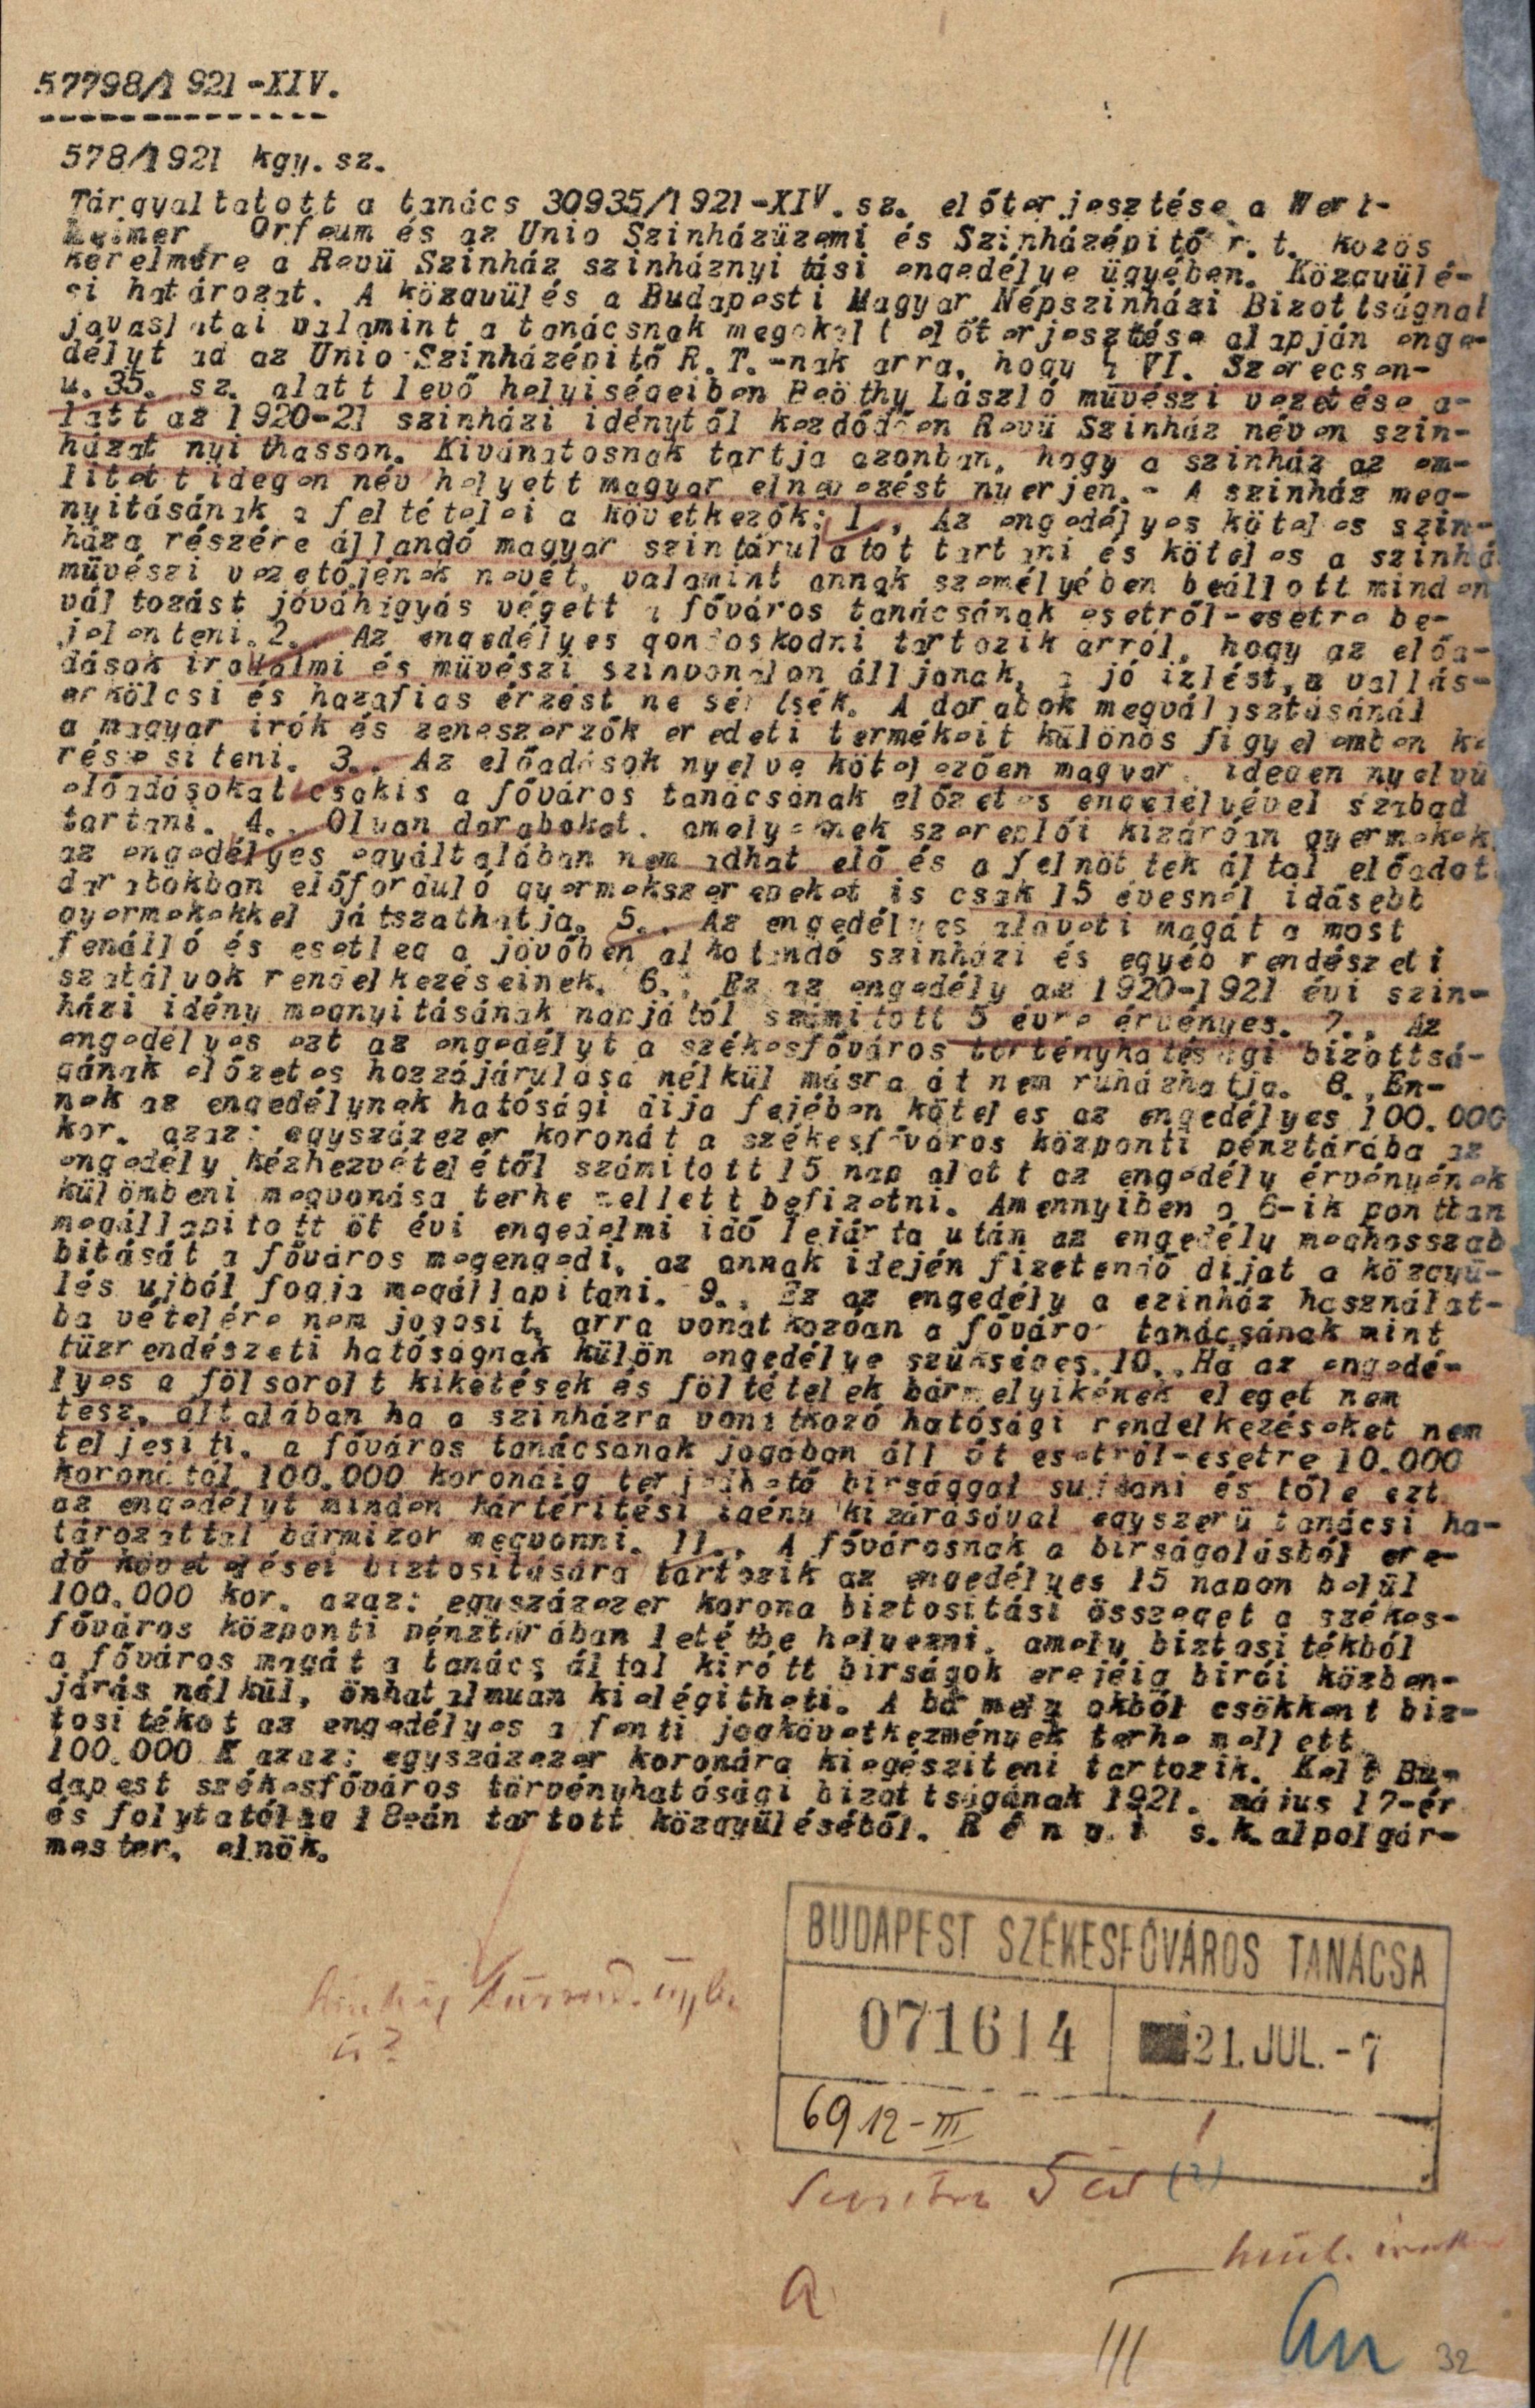 57798/1921-XIV.
578/1921 kgy.sz.
Tárgyaltatott a tanács 30935/1921-XIV.sz. előterjesztése a Wert-
heimer Orfeum és az Unio Szinházüzemi és Szinházépitő r.t. közös
kérelmére a Revü Szinház szinháznyitási engedélye ügyében. Közgyülé-
si határozat. A közgyülés a Budapesti Magyar Népszinházi Bizottságnak
javaslatai valamint a tanácsnak megokolt előterjesztése alapján enge-
délyt ad az Unio Szinházépitő R.T.-nak arra, hogy a VI. Szerecsen-
u.35. sz. alatt levő helyiségeiben Beöthy László müvészi vezetése a-
latt az 1920-21 szinházi idénytől kezdődően Revü Szinház néven szin-
házat nyithasson. Kivánatosnak tartja azonban, hogy a szinház az em-
litett idegen név helyett magyar elnevezést nyerjen.- A szinház meg-
nyitásának a feltételei a következők: 1., Az engedélyes köteles szin-
háza részére állandó magyar szintárulatot tartani és köteles a szinhá
müvészi vezetőjének nevét, valamint annak személyében beállott minden
változást jóváhagyás végett a főváros tanácsának esetről-esetre be-
jelenteni.2., Az engedélyes gondoskodni tartozik arról, hogy az előa-
dások irodalmi és müvészi szinvonalon álljanak, a jó izlést,a vallás-
erkölcsi és hazafias érzést ne sértsék. A darabok megválasztásánál
a magyar irók és zeneszerzők eredeti termékeit különös figyelemben ke
részesiteni. 3., Az előadások nyelve kötelezően magyar, idegen nyelvü
előadásokat csakis a főváros tanácsának előzetes engedélyével szabad
tartani. 4., Olyan darabokat, amelyeknek szereplői kizáróan gyermekek,
az engedélyes egyáltalában nem adhat elő és a felnöttek által előadot
darabokban előforduló gyermekszerepeket is csak 15 évesnél idősebb
gyermekekkel játszathatja. 5., Az engedélyes aláveti magát a most
fenálló és esetleg a jövőben alkotandó szinházi és egyéb rendészeti
szabályok rendelkezéseinek. 6., Ez az engedély az 1920-1921 évi szin-
házi idény megnyitásának napjától számitott 5 évre érvényes. 7., Az
engedélyes ezt az engedélyt a székesfőváros törvényhatósági bizottsá-
gának előzetes hozzájárulása nélkül másra át nem ruházhatja. 8., En-
nek az engedélynek hatósági dija fejében köteles az engedélyes 100.000
kor. azaz: egyszázezer koronát a székesfőváros központi pénztárába az
engedély kézhezvételétől számitott 15 nap alatt az engedély érvényének
külömbeni megvonása terhe mellett befizetni. Amennyiben a 6-ik pontban
megállapitott öt évi engedelmi idő lejárta után az engedély meghosszab
bitását a főváros megengedi, az annak idején fizetendő dijat a közgyü-
lés ujból fogja megállapitani. 9., Ez az engedély a szinház használat-
ba vételére nem jogosit, arra vonatkozóan a főváros tanácsának mint
tüzrendészeti hatóságnak külön engedélye szükséges.10.,Ha az engedé-
lyes a fölsorolt kikötések és föltételek bármelyikének eleget nem
tesz, általában ha a szinházra vonatkozó hatósági rendelkezéseket nem
teljesiti, a főváros tanácsának jogában áll őt esetről-esetre 10.000
koronától 100.000 koronáig terjedhető birsággal sujtani és tőle ezt
az engedélyt minden kártéritési igény kizárásával egyszerü tanácsi ha-
tározattal bármikor megvonni. 11., A fővárosnak a birságolásból ere-
dő követelései biztositására tartozik az engedélyes 15 napon belül
100.000 kor. azaz: egyszázezer korona biztositási összeget a székes-
főváros központi pénztárában letétbe helyezni, amely biztositékból
a főváros magát a tanács által kirótt birságok erejéig birói közben-
járás nélkül, önhatalmuan kielégitheti. A bármely okból csökkent biz-
tositékot az engedélyes a fenti jogkövetkezmények terhe mellett
100.000 K azaz: egyszázezer koronára kiegésziteni tartozik. Kelt Bu-
dapest székesfőváros törvényhatósági bizottságának 1921. május 17-én
és folytatólag 18-án tartott közgyüléséből. R é n y i s.k.alpolgár-
mester, elnök.
BUDAPEST SZÉKESFŐVÁROS TANÁCSA
071614 21.JUL.-7
6912-III
5
A
III
32